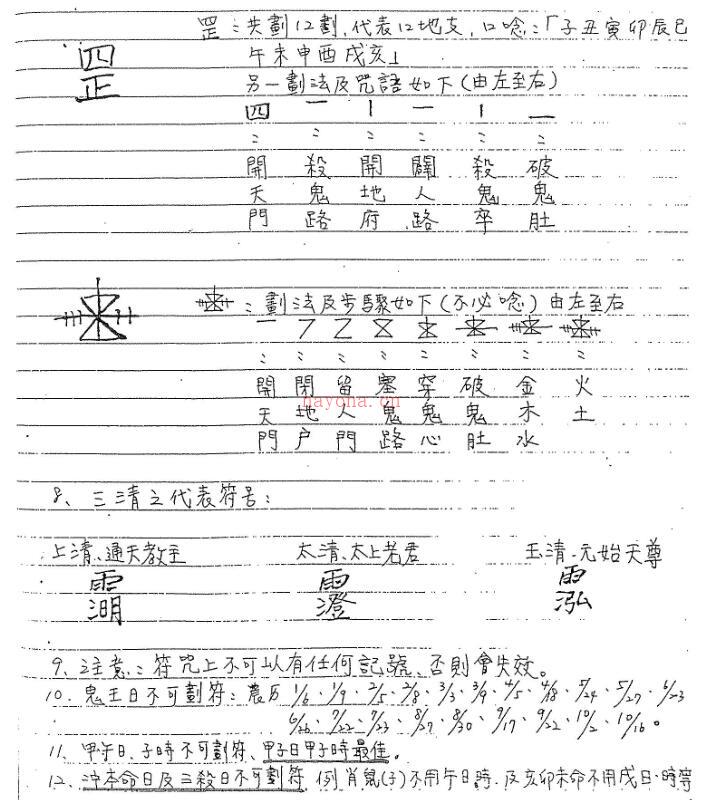 罡：共劃12劃，代表12地支，口唸：「子丑寅卯辰巳
午未申酉戌亥」
另一劃法及咒語如下(由左至右)
四 一 丨 一 丨 一
： ： ： ： ： ：
開 殺 開 闢 殺 破
天 鬼 地 人 鬼 鬼
門 路 府 路 卒 肚
：劃法及步驟如下(不必唸)由左至右
： ： ： ： ： ： ： ：
開 閉 留 塞 穿 破 金 火
天 地 人 鬼 鬼 鬼 木 土
門 户 門 路 心 肚 水
nayona.cn
8、三清之代表符号：
上清、通天教主 太清、太上老君 玉清、元始天尊
9、注意：符咒上不可以有任何記號、否則會失效。
10、鬼王日不可劃符：農历 1/6、1/9、2/5、2/8、3/3、3/9、4/5、4/8、5/24、5/27、6/23
6/26、7/22、7/23、8/27、8/30、9/17、9/22、10/2、10/16。
11、甲午日、子時不可劃符、甲子日甲子時最佳。
12、沖本命日及三殺日不可劃符 例肖鼠(子)不用午日時、及亥卯未命不用戌日、時等